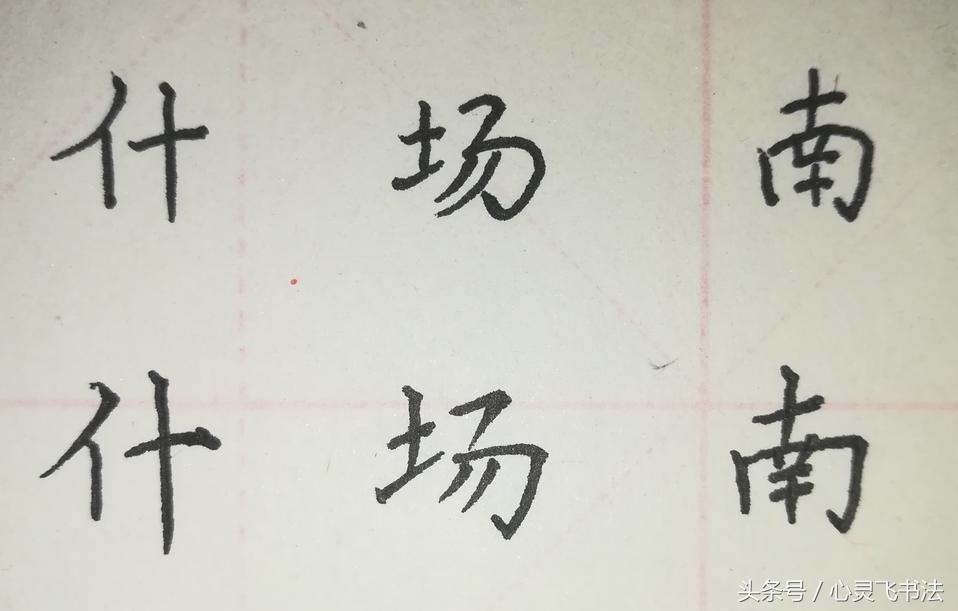 什 场 南
什 场 南
头条号 / 心灵飞书法